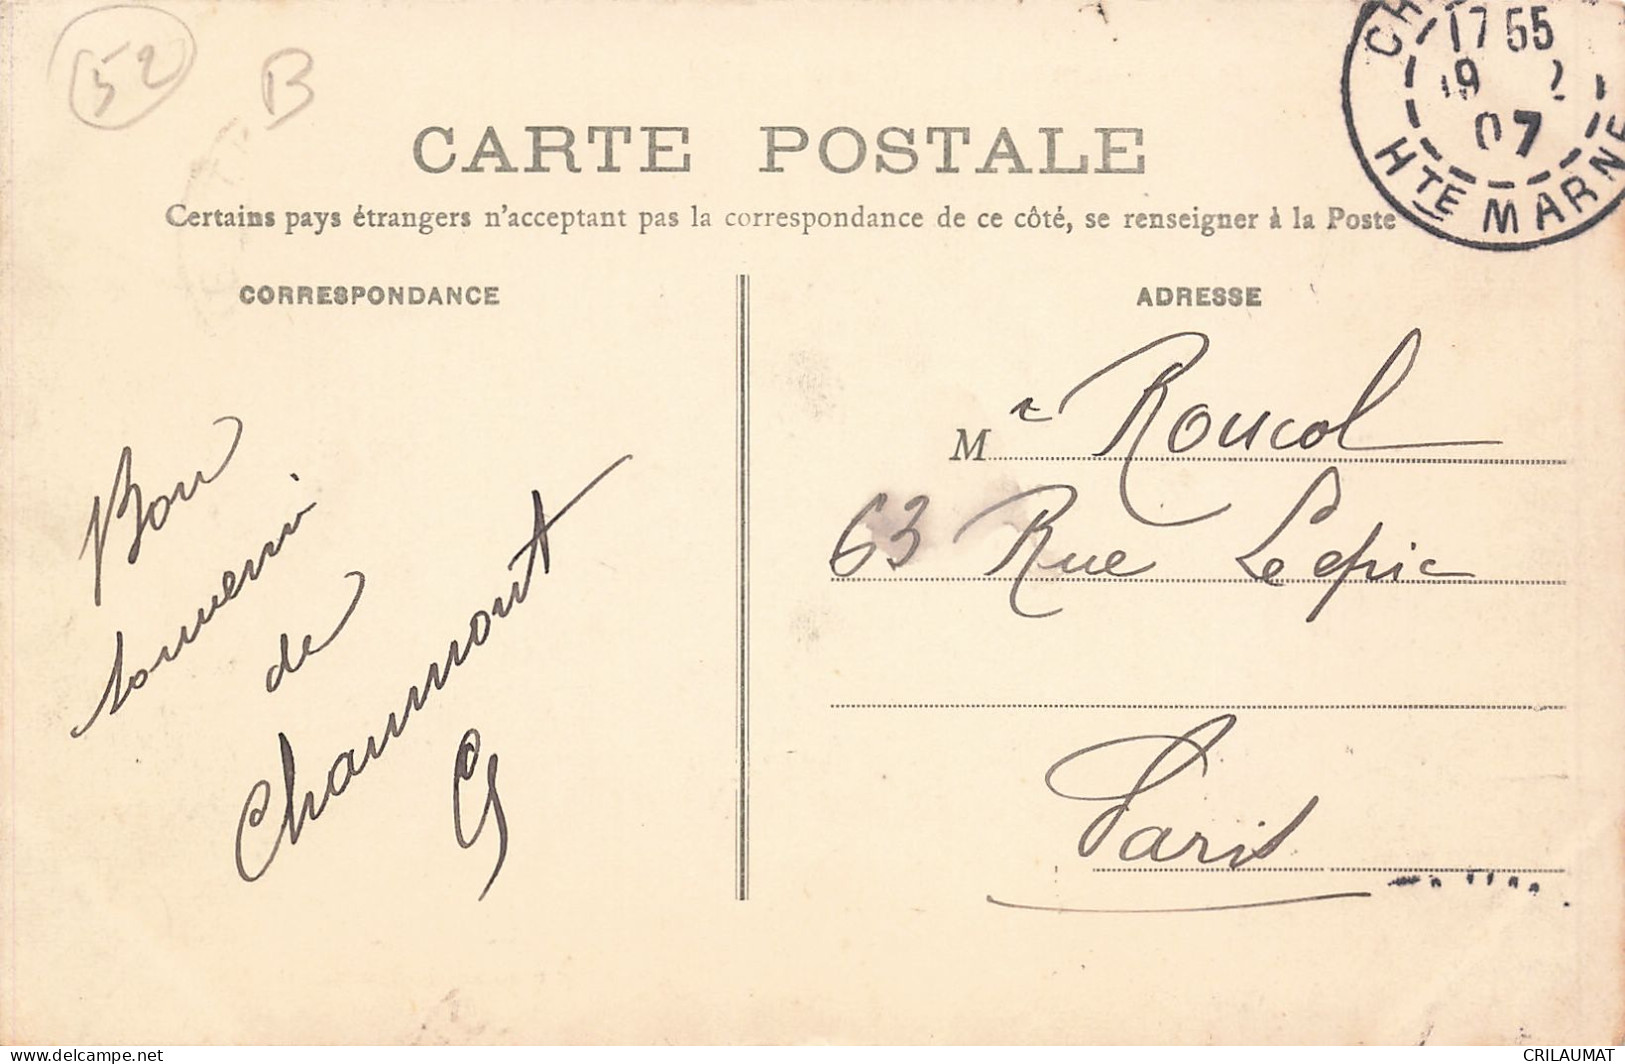 52
B
CARTE POSTALE
Certains pays étrangers n'acceptant pas la correspondance de ce côté, se renseigner à la Poste
17 55
19 2
07
HTE MARNE
CORRESPONDANCE
Bon
souvenir
de
Chaumont
G
ADRESSE
Mr Roucol
63 Rue Lepic
Paris
delcampe.net
CRILAUMAT